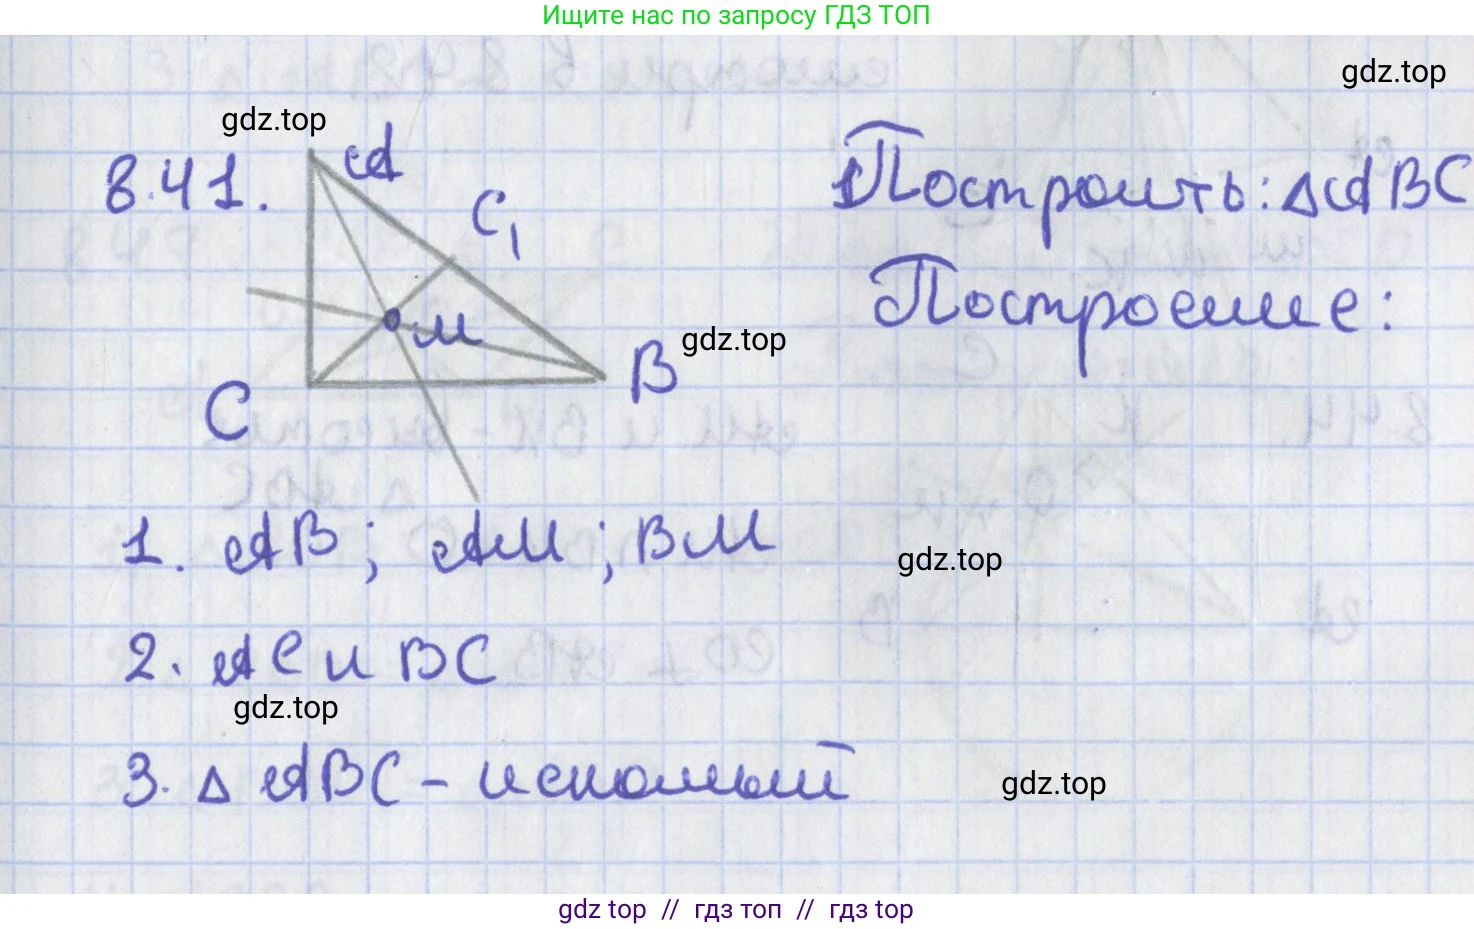 Ищите нас по запросу ГДЗ ТОП
gdz.top
gdz.top
8.41.
A
C₁
M
B
C
Построить: △ABC
Построение:
gdz.top
1. AB; AM; BM
gdz.top
2. AC и BC
gdz.top
3. △ ABC - искомый
gdz.top
gdz top // гдз топ // гдз top